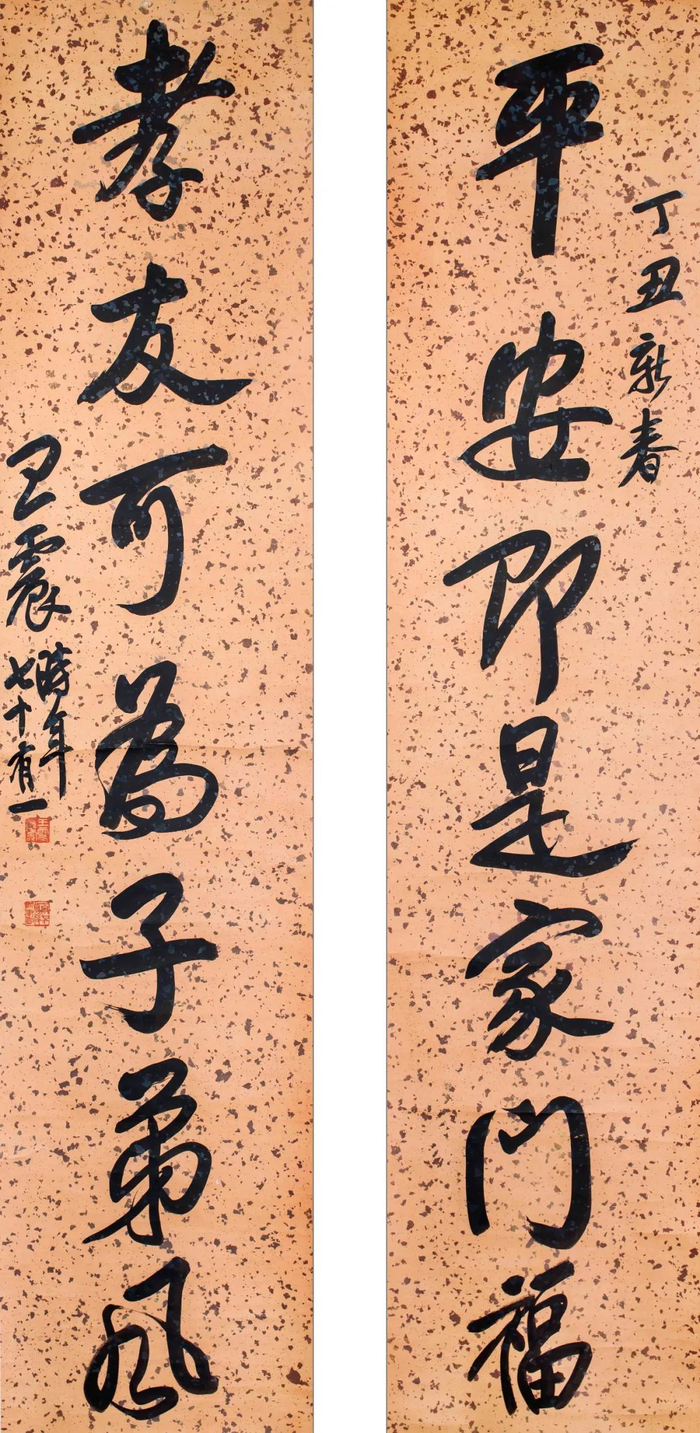 丁丑新春
平安即是家門福
孝友可為子弟風
王震時年
七十有一